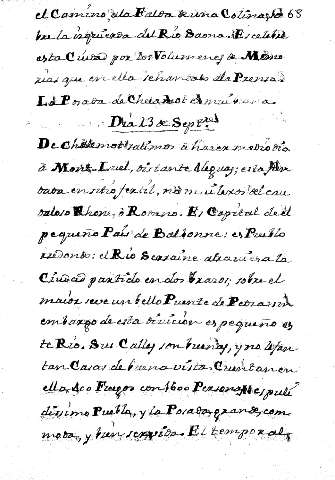 el Camino, a la Falda de una Colina, so 68
bre la izquierda del Rio Saona. Es celebre
esta Ciudad por los Volumenes de Memo
rias que en ella se han dado a la Prensa.
La Posada de
Dia 13 de Sept.re
De salimos à hacer mediodia
à Mont-Luel, distante leguas; esta
en sitio fertil, no mui lexos del cau
daloso Rhone, ò Romno. Es Capital de el
pequeño Pais de Balbonne: es Pueblo
redondo: el Rio Seraine atraviesa la
Ciudad partido en dos brazos; sobre el
maior se ve un bello Puente de Petra: sin
embargo de esta division es pequeño es
te Rio. Sus Calles son buenas, y no le fal
tan Casas de buena vista. Cuentan en
ella 400 Fuegos con 1600 Personas. Es puli
disimo Pueblo, y la Posada, grande, com
moda, y bien servida. El temporal,